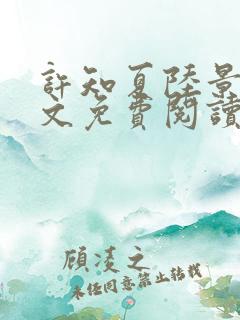 許知夏陸景
文免費閱讀
顧淩之
未任同意禁止轉載